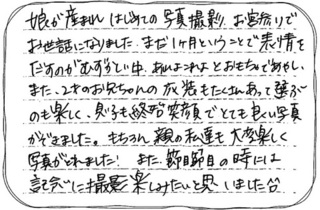 娘が産まれ はじめての写真撮影、お宮参りで
お世話になりました。まだ1ヶ月ということで表情を
だすのがむずかしい中、あれよこれよとおもちゃであやし
また、2才のお兄ちゃんの衣装もたくさんあって選ぶ
のも楽しく、息子も終始笑顔でとても良い写真
ができました。もちろん、親の私達も大変楽しく
写真がとれました! また、節目節目の時には
記念に撮影楽しみたいと思いました